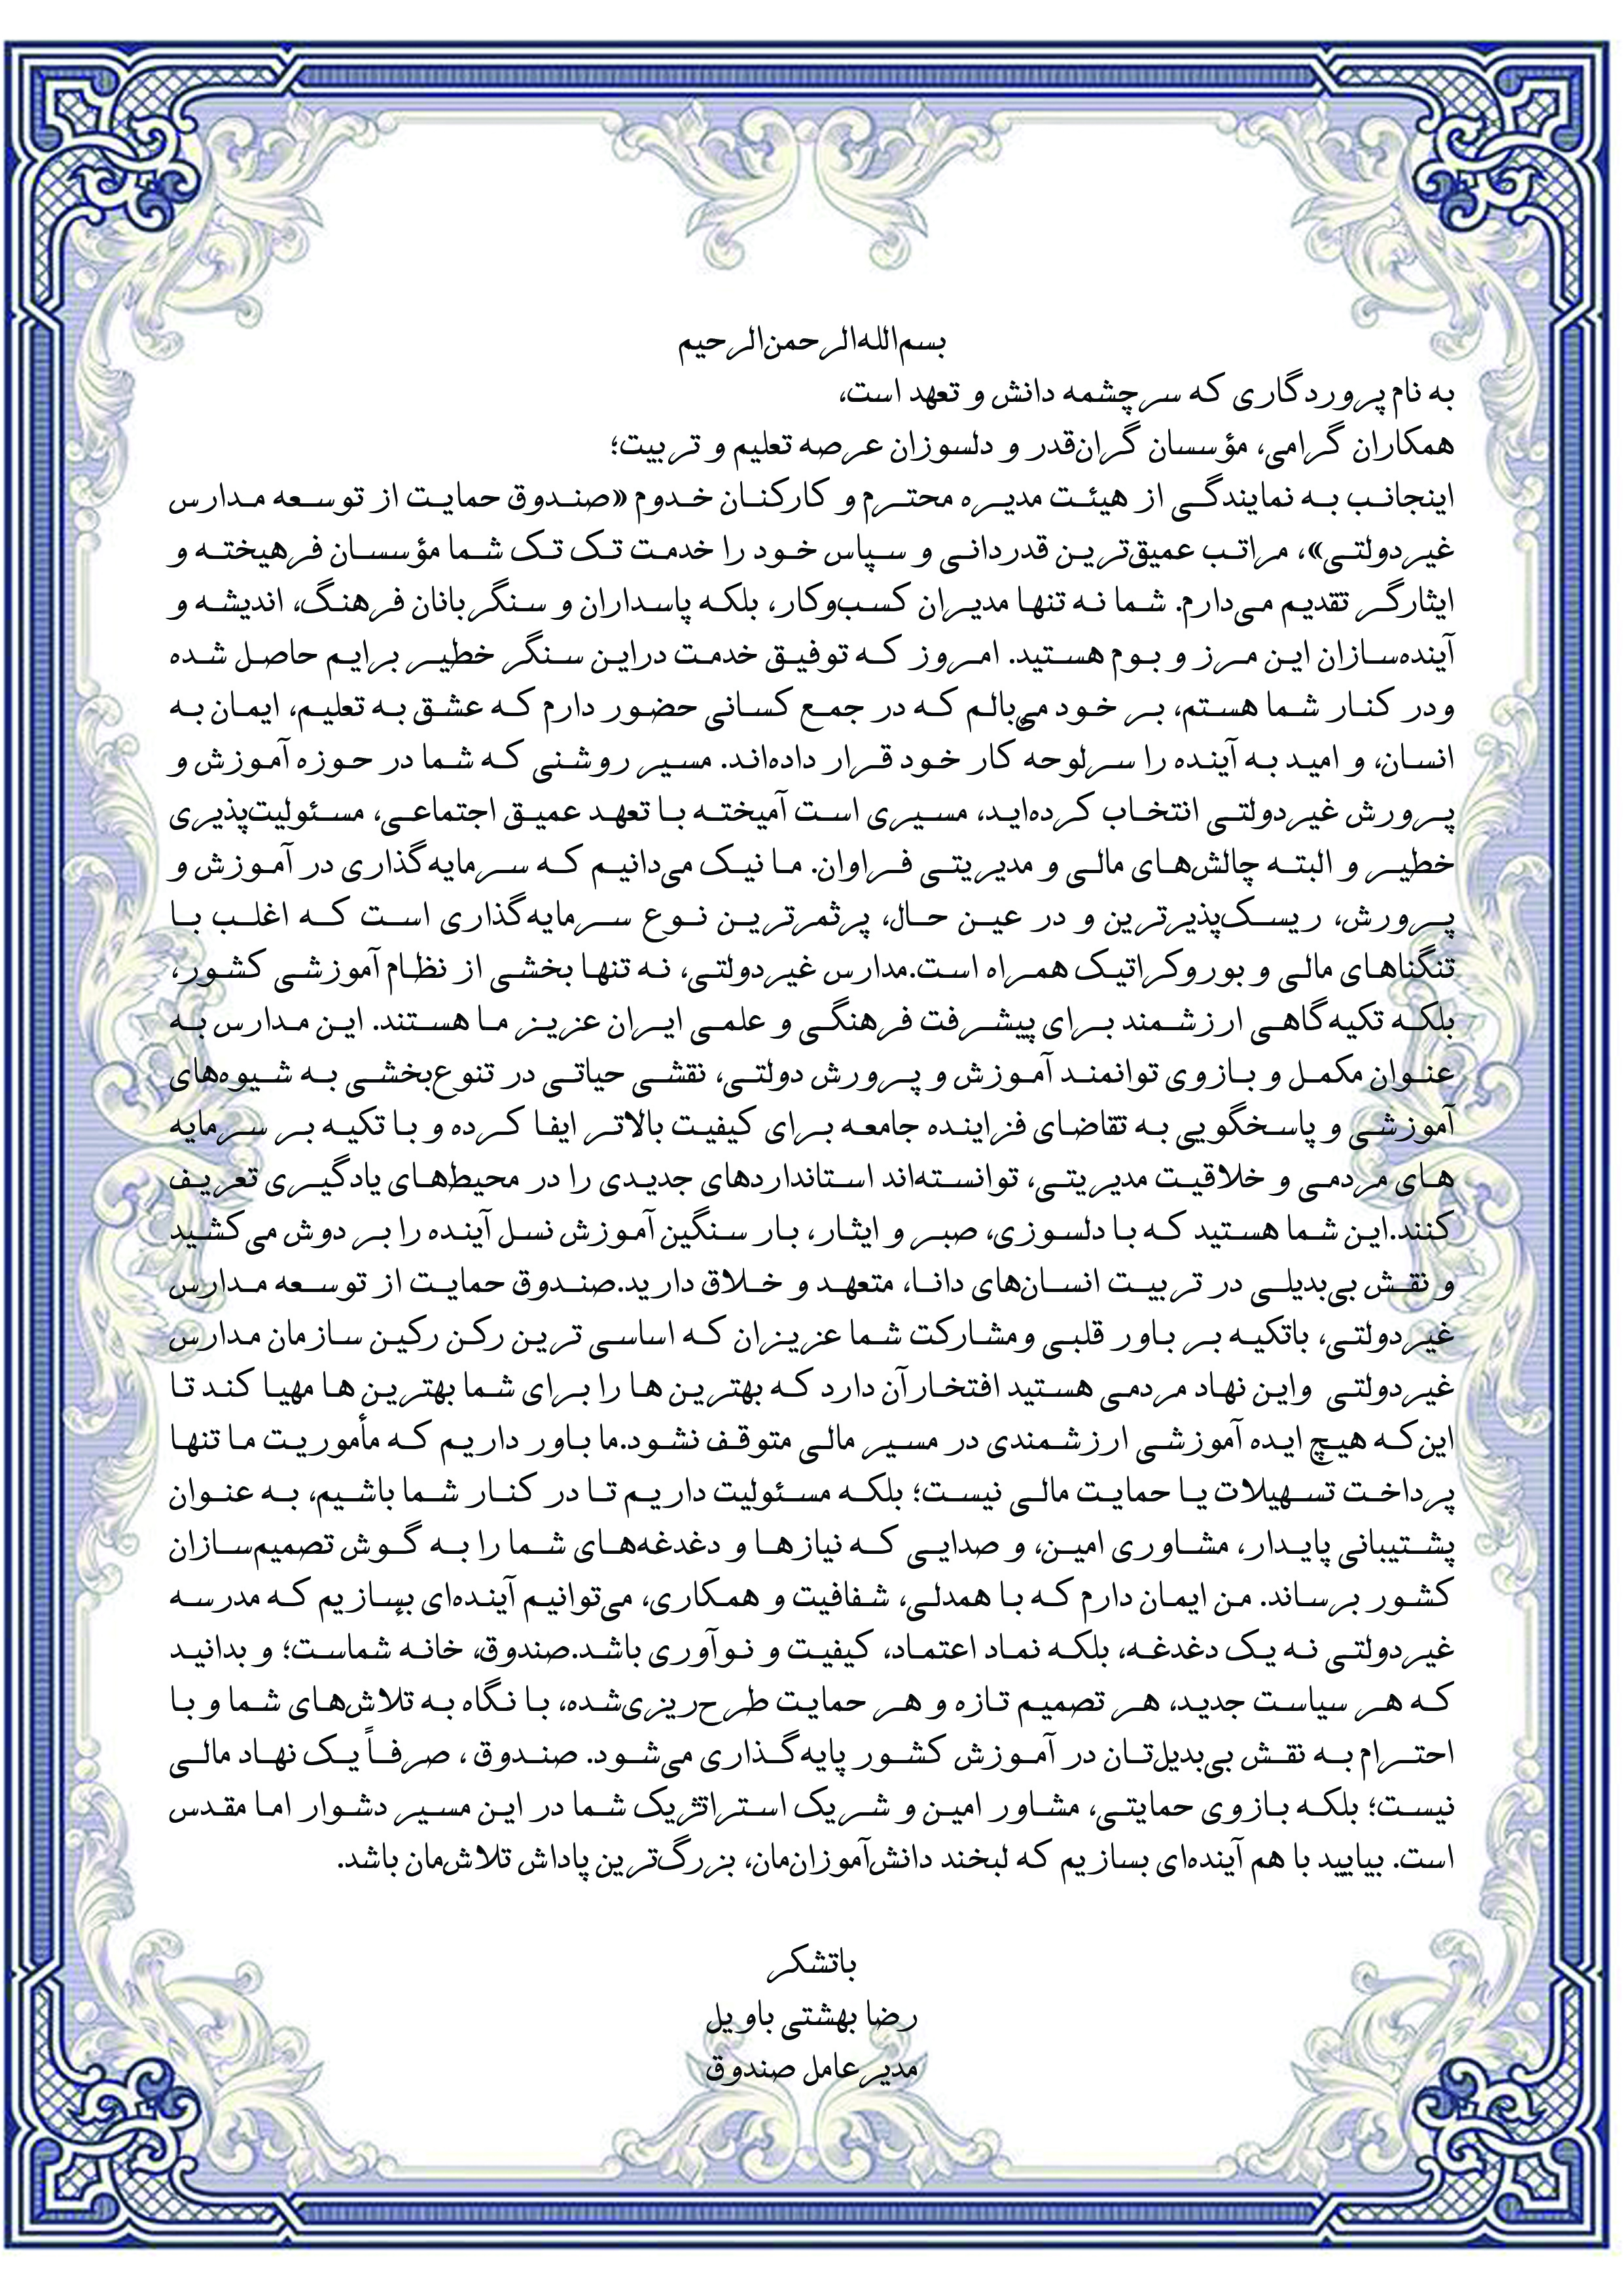 بسم‌الله‌الرحمن‌الرحیم
به نام پروردگاری که سرچشمه دانش و تعهد است،
همکاران گرامی، مؤسسان گران‌قدر و دلسوزان عرصه تعلیم و تربیت؛
اینجانب به نمایندگی از هیئت مدیره محترم و کارکنان خدوم «صندوق حمایت از توسعه مدارس
غیردولتی»، مراتب عمیق‌ترین قدردانی و سپاس خود را خدمت تک تک شما مؤسسان فرهیخته و
ایثارگر تقدیم می‌دارم. شما نه تنها مدیران کسب‌وکار، بلکه پاسداران و سنگربانان فرهنگ، اندیشه و
آینده‌سازان این مرز و بوم هستید. امروز که توفیق خدمت دراین سنگر خطیر برایم حاصل شده
ودر کنار شما هستم، بر خود می‌بالم که در جمع کسانی حضور دارم که عشق به تعلیم، ایمان به
انسان، و امید به آینده را سرلوحه کار خود قرار داده‌اند. مسیر روشنی که شما در حوزه آموزش و
پرورش غیردولتی انتخاب کرده‌اید، مسیری است آمیخته با تعهد عمیق اجتماعی، مسئولیت‌پذیری
خطیر و البته چالش‌های مالی و مدیریتی فراوان. ما نیک می‌دانیم که سرمایه‌گذاری در آموزش و
پرورش، ریسک‌پذیرترین و در عین حال، پرثمرترین نوع سرمایه‌گذاری است که اغلب با
تنگناهای مالی و بوروکراتیک همراه است.مدارس غیردولتی، نه تنها بخشی از نظام آموزشی کشور،
بلکه تکیه‌گاهی ارزشمند برای پیشرفت فرهنگی و علمی ایران عزیز ما هستند. این مدارس به
عنوان مکمل و بازوی توانمند آموزش و پرورش دولتی، نقشی حیاتی در تنوع‌بخشی به شیوه‌های
آموزشی و پاسخگویی به تقاضای فزاینده جامعه برای کیفیت بالاتر ایفا کرده و با تکیه بر سرمایه
های مردمی و خلاقیت مدیریتی، توانسته‌اند استانداردهای جدیدی را در محیط‌های یادگیری تعریف
کنند.این شما هستید که با دلسوزی، صبر و ایثار، بار سنگین آموزش نسل آینده را بر دوش می‌کشید
و نقش بی‌بدیلی در تربیت انسان‌های دانا، متعهد و خلاق دارید.صندوق حمایت از توسعه مدارس
غیردولتی، باتکیه بر باور قلبی ومشارکت شما عزیزان که اساسی ترین رکن رکین سازمان مدارس
غیردولتی واین نهاد مردمی هستید افتخارآن دارد که بهترین ها را برای شما بهترین ها مهیا کند تا
این‌که هیچ ایده آموزشی ارزشمندی در مسیر مالی متوقف نشود.ما باور داریم که مأموریت ما تنها
پرداخت تسهیلات یا حمایت مالی نیست؛ بلکه مسئولیت داریم تا در کنار شما باشیم، به عنوان
پشتیبانی پایدار، مشاوری امین، و صدایی که نیازها و دغدغه‌های شما را به گوش تصمیم‌سازان
کشور برساند. من ایمان دارم که با همدلی، شفافیت و همکاری، می‌توانیم آینده‌ای بسازیم که مدرسه
غیردولتی نه یک دغدغه، بلکه نماد اعتماد، کیفیت و نوآوری باشد.صندوق، خانه شماست؛ و بدانید
که هر سیاست جدید، هر تصمیم تازه و هر حمایت طرح‌ریزی‌شده، با نگاه به تلاش‌های شما و با
احترام به نقش بی‌بدیل‌تان در آموزش کشور پایه‌گذاری می‌شود. صندوق ، صرفاً یک نهاد مالی
نیست؛ بلکه بازوی حمایتی، مشاور امین و شریک استراتژیک شما در این مسیر دشوار اما مقدس
است. بیایید با هم آینده‌ای بسازیم که لبخند دانش‌آموزان‌مان، بزرگ‌ترین پاداش تلاش‌مان باشد.
باتشکر
رضا بهشتی باویل
مدیرعامل صندوق